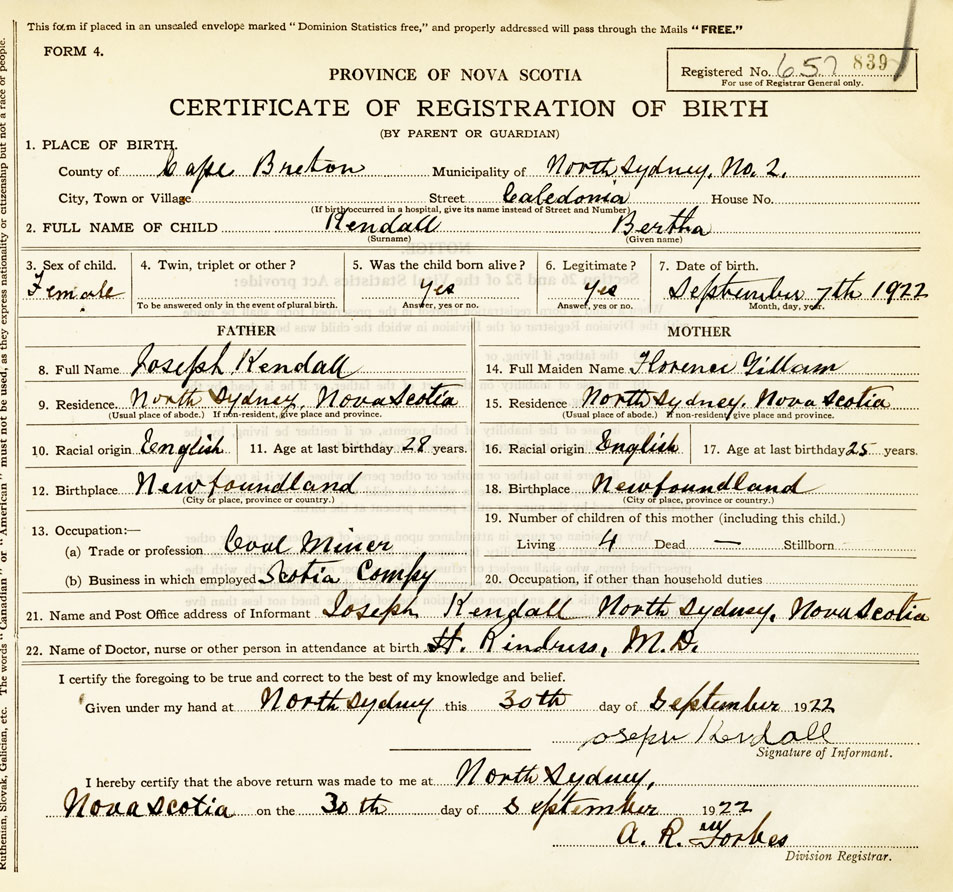 This form if placed in an unsealed envelope marked "Dominion Statistics free," and properly addressed will pass through the Mails "FREE."
FORM 4.
Registered No. 657 839
For use of Registrar General only.
PROVINCE OF NOVA SCOTIA
CERTIFICATE OF REGISTRATION OF BIRTH
(BY PARENT OR GUARDIAN)
1. PLACE OF BIRTH.
County of Cape Breton Municipality of North Sydney, No. 2.
City, Town or Village Street Caledonia House No.
(If birth occurred in a hospital, give its name instead of Street and Number)
2. FULL NAME OF CHILD Kendall Bertha
(Surname) (Given name)
3. Sex of child. 4. Twin, triplet or other? 5. Was the child born alive? 6. Legitimate? 7. Date of birth.
Female yes yes September 7th 1922
To be answered only in the event of plural birth. Answer, yes or no. Answer, yes or no. Month, day, year.
FATHER MOTHER
8. Full Name Joseph Kendall 14. Full Maiden Name Florence Gillam
9. Residence North Sydney, Nova Scotia 15. Residence North Sydney, Nova Scotia
(Usual place of abode.) If non-resident, give place and province. (Usual place of abode.) If non-resident give place and province.
10. Racial origin English 11. Age at last birthday 28 years. 16. Racial origin English 17. Age at last birthday 25 years.
12. Birthplace Newfoundland 18. Birthplace Newfoundland
(City or place, province or country.) (City or place, province or country.)
13. Occupation:— 19. Number of children of this mother (including this child.)
(a) Trade or profession Coal Miner Living 4 Dead — Stillborn
(b) Business in which employed Scotia Compy 20. Occupation, if other than household duties
21. Name and Post Office address of Informant Joseph Kendall North Sydney, Nova Scotia
22. Name of Doctor, nurse or other person in attendance at birth H. Rindress, M.D.
I certify the foregoing to be true and correct to the best of my knowledge and belief.
Given under my hand at North Sydney this 30th day of September 1922
Joseph Kendall
Signature of Informant.
I hereby certify that the above return was made to me at North Sydney,
Nova Scotia on the 30th day of September 1922
A. R. Forbes
Division Registrar.
Ruthenian, Slovak, Galician, etc. The words "Canadian" or "American" must not be used, as they express nationality or citizenship but not a race or people.